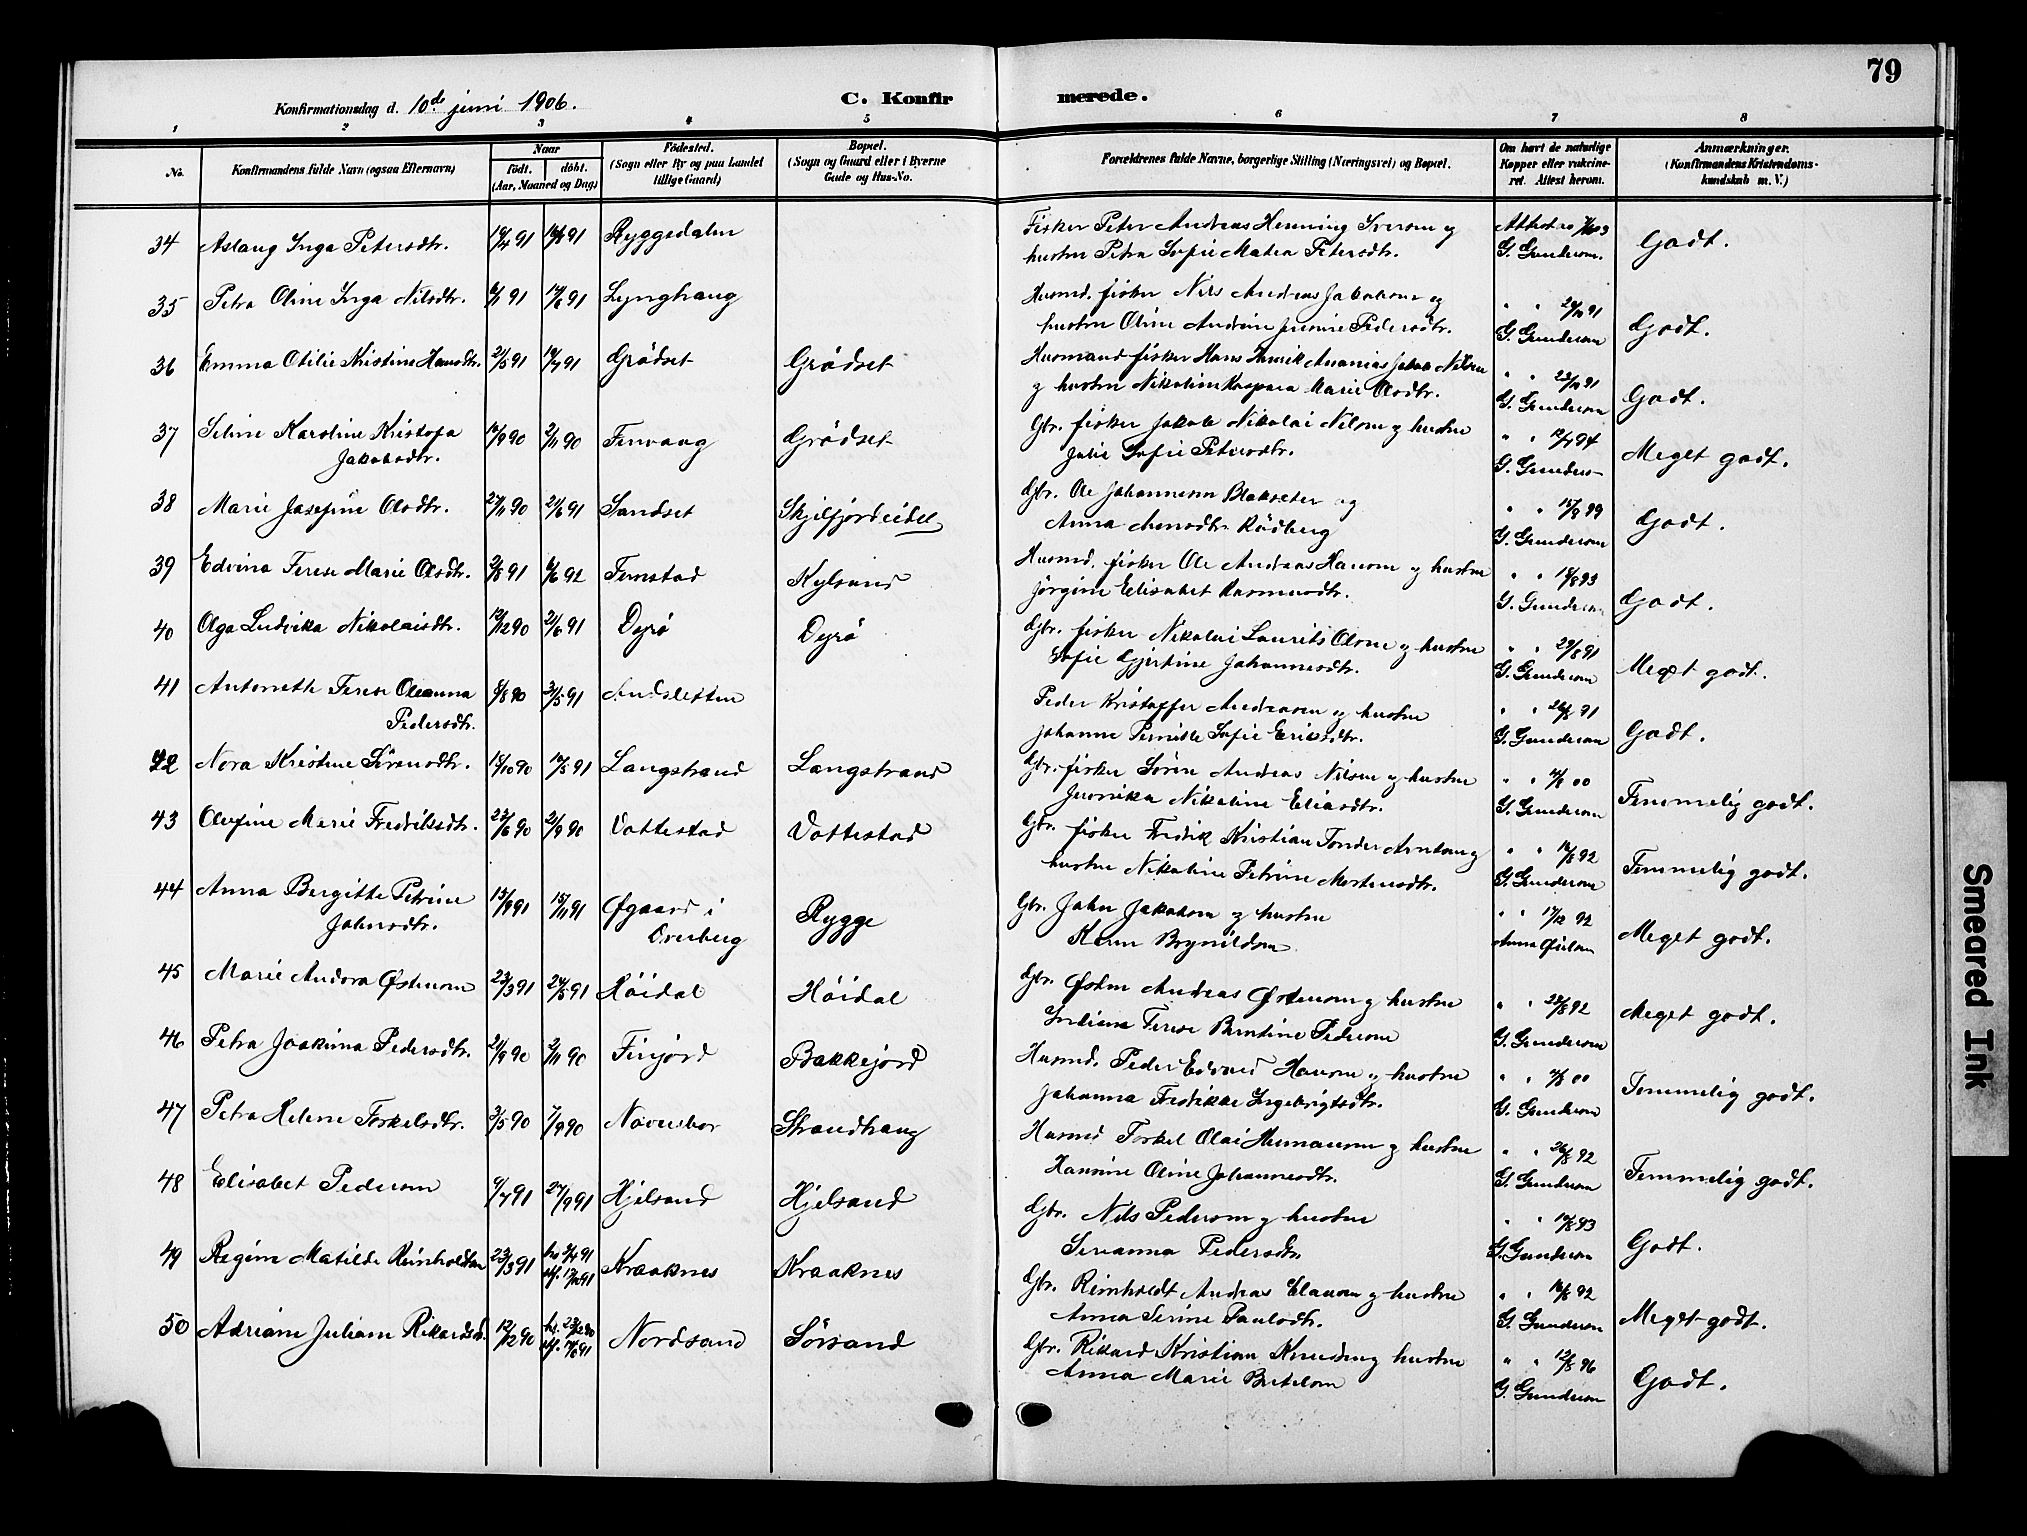 79
Konfirmationsdag d. 10de juni 1906. C. Konfirmerede.
1 2 3 4 5 6 7 8
No. Konfirmandens fulde Navn (ogsaa Efternavn) Naar født. døbt. (Aar, Maaned og Dag) Fødested. (Sogn eller By og paa Landet tillige Gaard) Bopæl. (Sogn og Gaard eller i Byerne Gade og Hus-No. Forældrenes fulde Navne, borgerlige Stilling (Næringsvei) og Bopæl. Om havt de naturlige Kopper eller vakcineret. Attest herom. Anmærkninger. (Konfirmandens Kristendomskundskab m. V.)
34 Aslaug Inga Petersdtr. 91 91 Ryggedalen Fisker Peter Andreas Henning Iversen og
hustru Petra Sofie Matea Petersdtr. G. Gundersen. Godt.
35 Petra Oline Inga Nilsdtr. 91 91 Lynghaug Husmd. fisker Nils Andreas Jakobsen og
hustru Oline Andrine Jensine Pedersdtr. " " 91 G. Gundersen Godt.
36 Emma Otilie Kristine Hansdtr. 21/5 91 19/7 91 Grødset Grødset Husmand fisker Hans Henrik Ananias Jakob Nilsen
og hustru Nikoline Kaspara Marie Olsdtr. " " 91 G. Gundersen Godt.
37 Seline Karoline Kristofa 90 2/11 90 Finvaag Grødset Gbr. fisker Jakob Nikolai Nilsen og hustru
Jakobsdtr. Julie Sofie Petersdtr. " " 94 G. Gunders- Meget godt.
38 Marie Josefine Olsdtr. 27/11 90 21/6 91 Sandset Skjelfjordeidet Gbr. Ole Johannesen Blakseter og
Anna Arnesdtr. Rødberg " " 15/8 99 G. Gundersen Godt.
39 Edvina Terese Marie Olsdtr. 3/8 91 6/6 92 Finstad Kylsand Husmd. fisker Ole Andreas Hansen og hustru
Jørgine Elisabet Rasmusdtr. " " 18/8 93 G. Gundersen Godt.
40 Olga Ludvika Nikolaisdtr. 12/12 90 21/6 91 Dyrø Dyrø Gbr. fisker Nikolai Laurits Olsen og hustru
Sofie Gjertine Johannesdtr. " " 29/8 91 G. Gundersen Meget godt.
41 Antonette Terese Oleanna 8/8 90 31/5 91 Andsletten Peder Kristoffer Andreasen og hustru
Pedersdtr. Johanne Pernille Sofie Eriksdtr. " " 26/8 91 G. Gundersen Godt.
42 Nora Kristine Sørensdtr. 15/10 90 91 Langstrand Langstrand Gbr. fisker Søren Andreas Nilsen og hustru
Jennika Nikoline Eliasdtr. " " 00 G. Gundersen Temmelig godt.
43 Olufine Marie Fredriksdtr. 22/6 90 21/9 90 Vottestad Vottestad Gbr. fisker Fredrik Kristian Tonder Arntsen og
hustru Nikoline Petrine Mortensdtr. " " 92 G. Gundersen Temmelig godt.
44 Anna Bergitte Petrine 13/9 91 15/11 91 Øgaard i Overberg Rygge Gbr. John Jakobsen og hustru
Johnsdtr. Karen Brynildsen " " 17/12 92 Meget godt.
45 Marie Andora Østensen 23/3 91 24/5 91 Høidal Høidal Gbr. Østen Andreas Østensen og hustru
Indiana Terese Berntine Pedersen " " 92 G. Gundersen Meget godt.
46 Petra Joakima Pedersdtr. 21/9 90 2/11 90 Finjord Bakkejord Husmd. Peder Edvard Hansen og hustru
Johanna Fredrikke Ingebrigtsdtr. " " 00 G. Gundersen Temmelig godt.
47 Petra Helene Torkelsdtr. 3/5 90 7/9 90 Strandhaug Husmd Torkel Olai Hemansen og hustru
Hansine Oline Johannesdtr. " " 26/8 92 G. Gundersen Temmelig godt.
48 Elisabet Pedersen 91 27/9 91 Hjelsand Hjelsand Gbr. Nils Pedersen og hustru
Serianna Pedersdtr. " " 93 G. Gundersen Godt.
49 Regine Matilde Reinholdtsen 23/3 91 91 91 Kraaknes Kraaknes Gbr. Reinholdt Andreas Clausen og hustru
Anna Serine Paulsdtr. " " 92 G. Gundersen Meget godt.
50 Adriane Juliane Rikardsd. 12/12 90 90 91 Nordsand Sørsand Gbr. Rikard Kristian Knudsen og hustru
Anna Marie Bertelsen " " 12/8 96 G. Gundersen Godt.
Smeared Ink